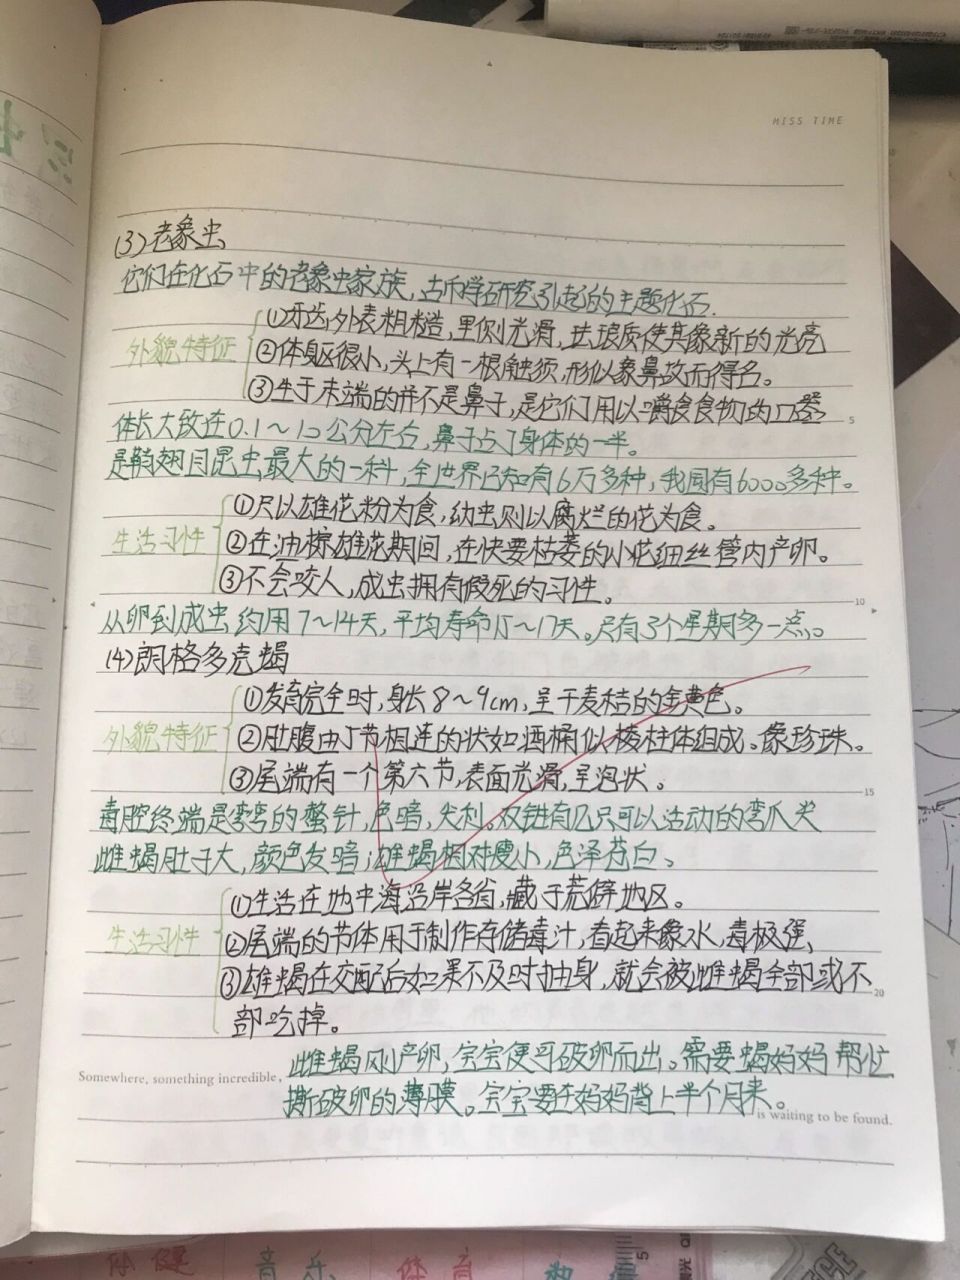 MISS TIME
(3)老象虫
它们在化石中的老象虫家族,古所学研究引起的主题化石.
外貌特征
①牙齿,外表粗糙,里侧光滑,珐琅质使其象新的光亮
②体躯很小,头上有一根触须,形似象鼻故而得名。
③生于末端的并不是鼻子,是它们用以嚼食食物的口器
5
体长大致在0.1~10公分左右,鼻子占了身体的一半。
是鞘翅目昆虫最大的一科,全世界已知有6万多种,我国有6000多种。
生活习性
①只以雄花粉为食,幼虫则以腐烂的花为食。
②在油棕雄花期间,在快要枯萎的小花细丝管内产卵。
③不会咬人,成虫拥有假死的习性。
10
从卵到成虫约用7~14天,平均寿命15~17天。只有3个星期多一点。
(4)朗格多克蝎
外貌特征
①发育完全时,身长8~9cm,呈干麦秸的金黄色。
②肚腹由J节相连的状如酒桶似棱柱体组成。象珍珠。
③尾端有一个第六节,表面光滑,呈泡状。
15
毒腔终端是弯弯的螫针,色暗,尖利。双钳有几只可以活动的弯爪尖
雌蝎肚子大,颜色发暗;雄蝎相对瘦小,色泽苍白、
生活习性
①生活在地中海沿岸各省,藏于荒僻地区。
②尾端的节体用于制作存储毒汁,看起来象水,毒极强、
③雄蝎在交配后如果不及时抽身,就会被雌蝎全部或不
20
部吃掉。
雌蝎刚产卵,宝宝便可破卵而出。需要蝎妈妈帮忙
Somewhere, something incredible,
撕破卵的薄膜。宝宝要在妈妈背上半个月来。
is waiting to be found.
保健 音乐 体育
5